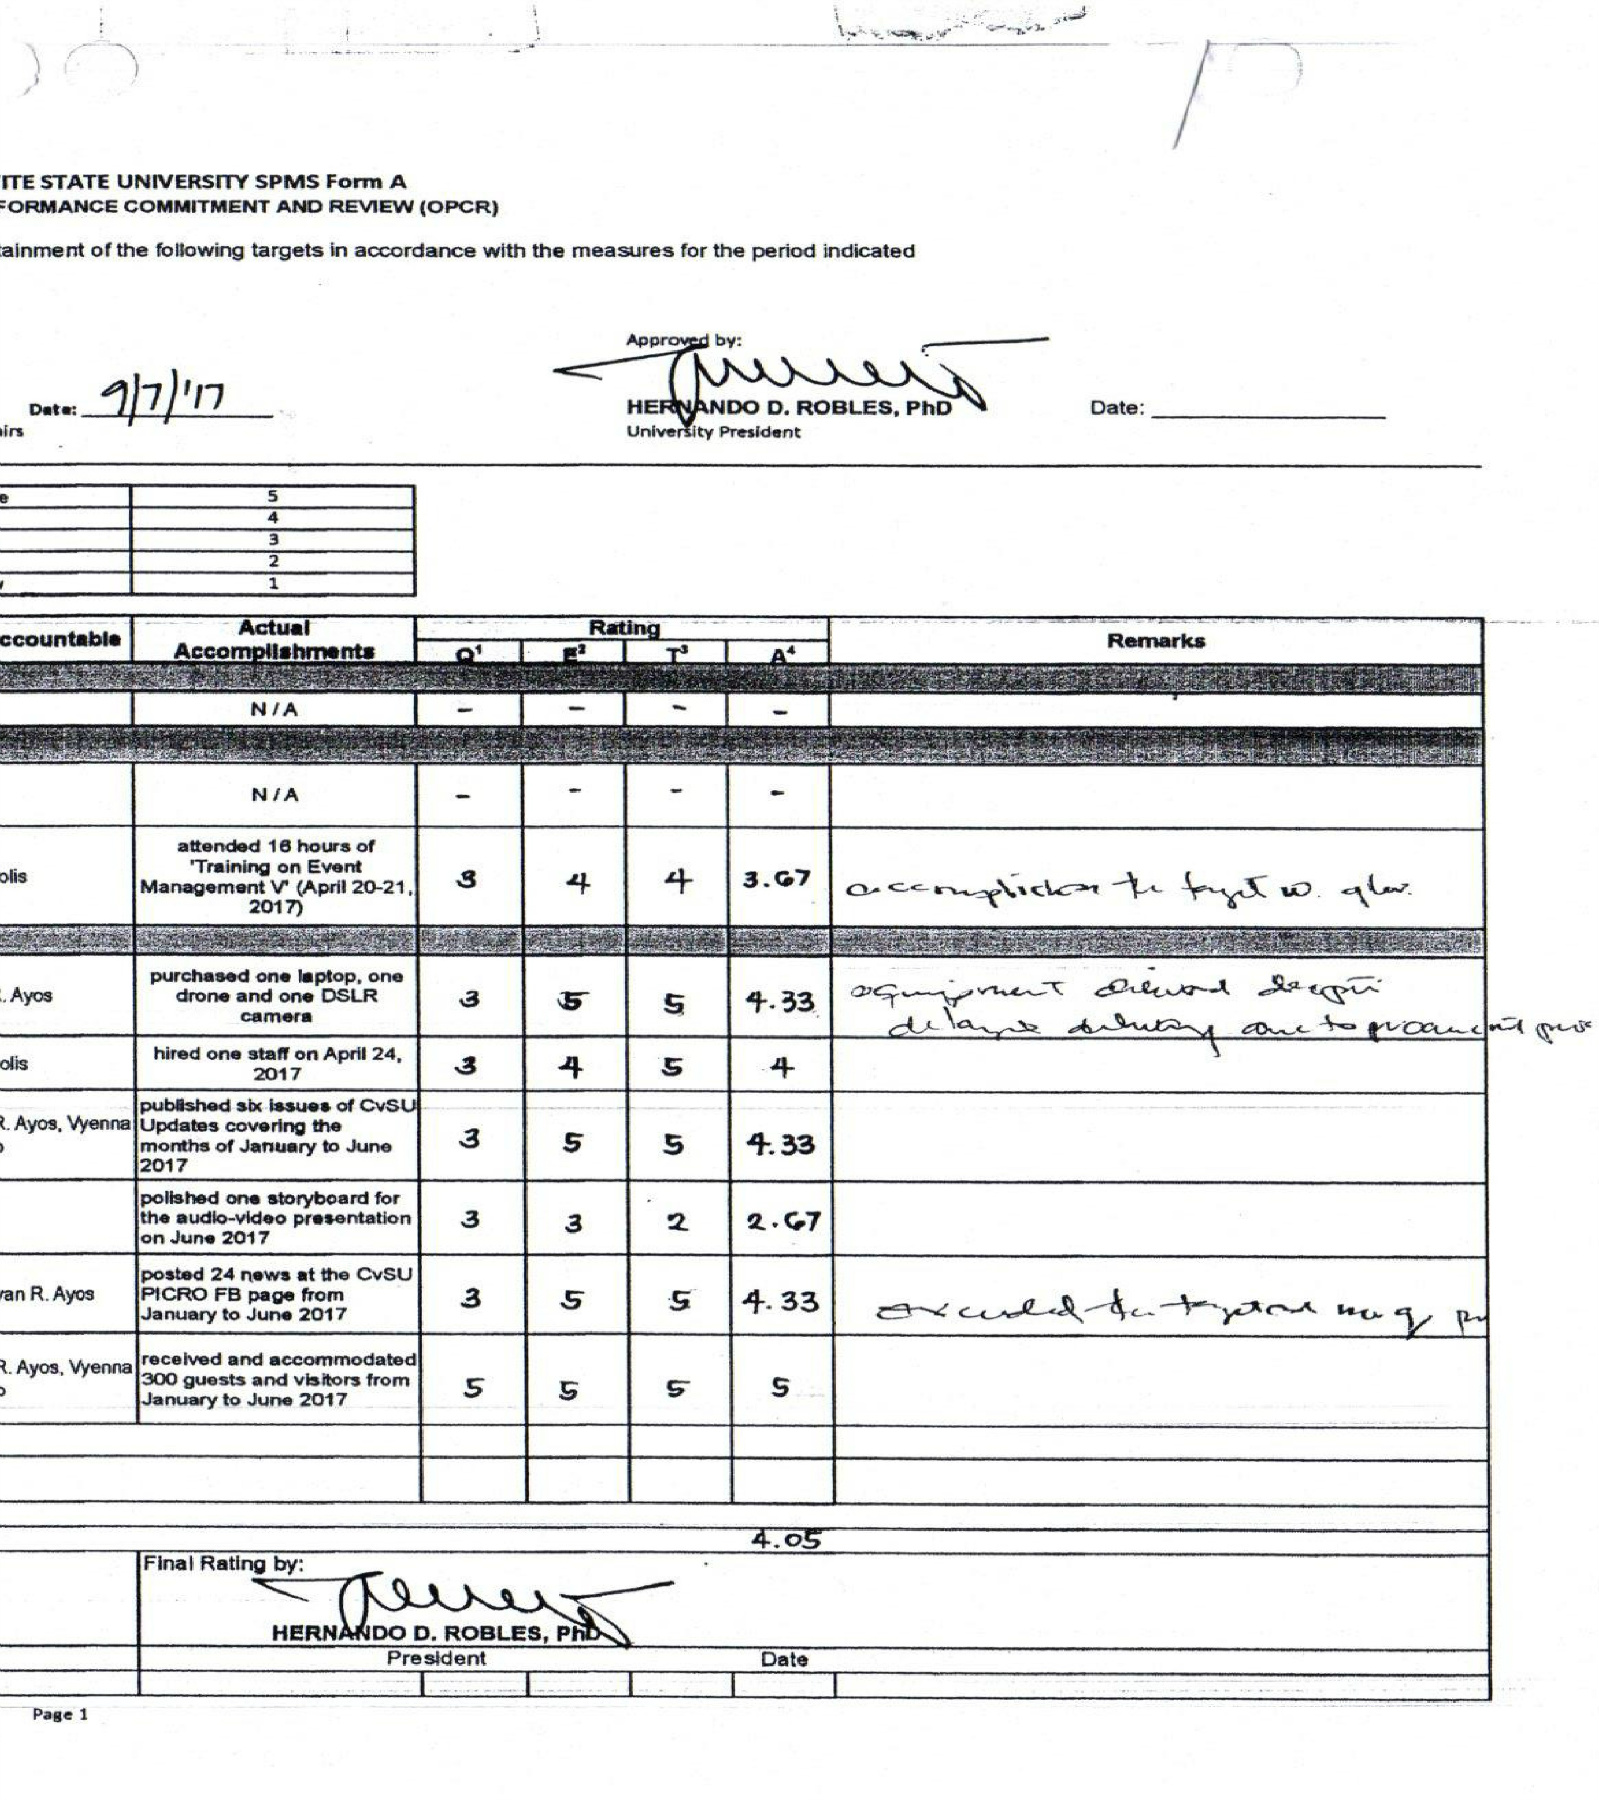 ITE STATE UNIVERSITY SPMS Form A
FORMANCE COMMITMENT AND REVIEW (OPCR)
tainment of the following targets in accordance with the measures for the period indicated
Approved by:
Date: 9/7/'17
HERNANDO D. ROBLES, PhD
Date:
airs
University President
e 5
4
3
2
y 1
ccountable Actual Accomplishments Rating Remarks
Q¹ E² T³ A⁴
N/A - - - -
N/A - - - -
olis
attended 16 hours of
'Training on Event
Management V' (April 20-21,
2017)
3 4 4 3.67
the target w.
. Ayos
purchased one laptop, one
drone and one DSLR
camera
3 5 5 4.33
equipment despite
delayed delivery due to procurement
olis
hired one staff on April 24,
2017
3 4 5 4
R. Ayos, Vyenna
o
published six issues of CvSU
Updates covering the
months of January to June
2017
3 5 5 4.33
polished one storyboard for
the audio-video presentation
on June 2017
3 3 2 2.67
van R. Ayos
posted 24 news at the CvSU
PICRO FB page from
January to June 2017
3 5 5 4.33
exceeded the
R. Ayos, Vyenna
o
received and accommodated
300 guests and visitors from
January to June 2017
5 5 5 5
4.05
Final Rating by:
HERNANDO D. ROBLES, PhD
President Date
Page 1